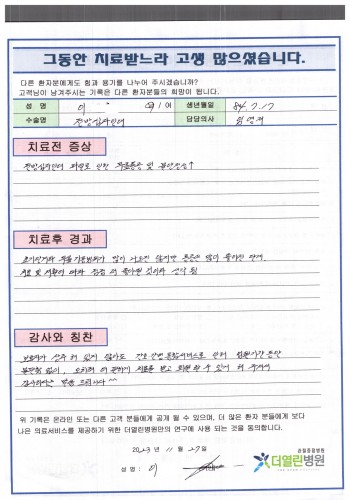 그동안 치료받느라 고생 많으셨습니다.
다른 환자분에게도 힘과 용기를 나누어 주시겠습니까?
고객님이 남겨주시는 기록은 다른 환자분들의 희망이 됩니다.
성 명 이 여 생년월일 84.7.17
수술명 전방십자인대 담당의사
치료전 증상
전방십자인대 파열로 인한 무릎통증 및 불안정성↑
치료후 경과
치료 및 재활이 여러
감사와 칭찬
보호자가 상주해 있지 않아도 간호간병통합서비스로 인해 입원기간동안
불편함 없이, 치료를 받고 회복할 수 있게 해 주셔서
감사하다는 말씀 드립니다 ^^
위 기록은 온라인 또는 다른 고객 분들에게 공개 될 수 있으며, 더 많은 환자 분들에게 보다
나은 의료서비스를 제공하기 위한 더열린병원만의 연구에 사용 되는 것을 동의합니다.
2023 년 11 월 27일
성 명 : 이
관절중점병원
더열린병원